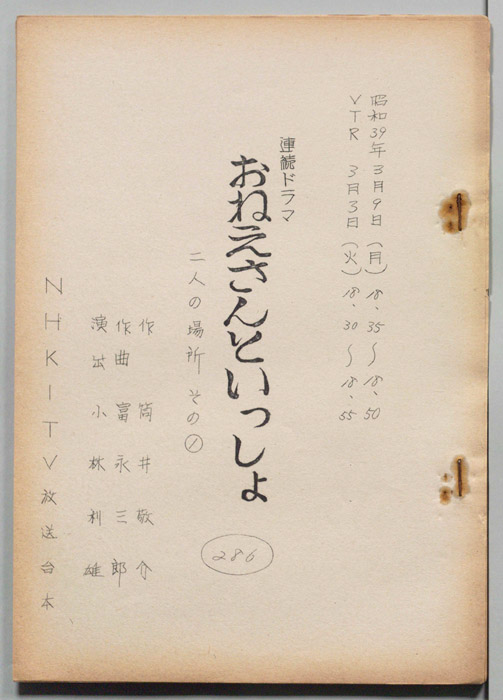 昭和39年3月9日(月)18.35〜18.50
VTR 3月3日(火)18.30〜18.55
連続ドラマ
おねえさんといっしょ
286
二人の場所 その①
作 筒井敬介
作曲 富永三郎
演出 小林利雄
NHKITV放送台本